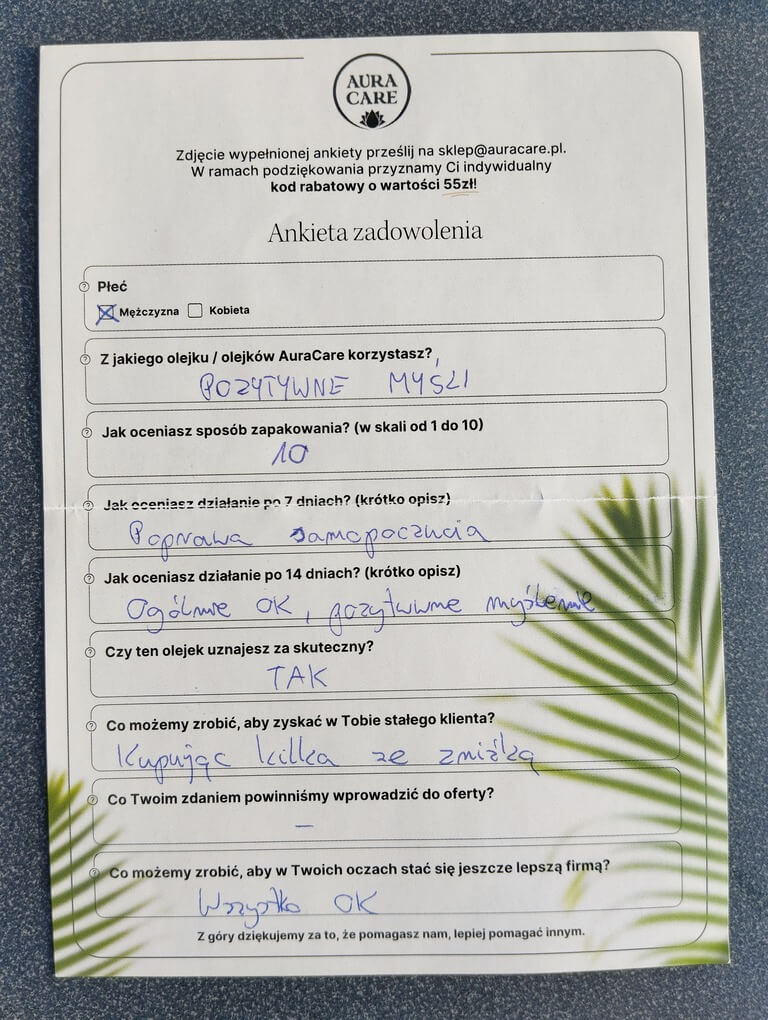 AURA
CARE
Zdjęcie wypełnionej ankiety prześlij na sklep@auracare.pl.
W ramach podziękowania przyznamy Ci indywidualny
kod rabatowy o wartości 55zł!
Ankieta zadowolenia
Płeć
Mężczyzna Kobieta
Z jakiego olejku / olejków AuraCare korzystasz?
POZYTYWNE MYŚLI
Jak oceniasz sposób zapakowania? (w skali od 1 do 10)
10
Jak oceniasz działanie po 7 dniach? (krótko opisz)
Poprawa samopoczucia
Jak oceniasz działanie po 14 dniach? (krótko opisz)
Ogólnie OK, pozytywne myślenie
Czy ten olejek uznajesz za skuteczny?
TAK
Co możemy zrobić, aby zyskać w Tobie stałego klienta?
Kupując kilka ze zniżką
Co Twoim zdaniem powinniśmy wprowadzić do oferty?
–
Co możemy zrobić, aby w Twoich oczach stać się jeszcze lepszą firmą?
Wszystko OK
Z góry dziękujemy za to, że pomagasz nam, lepiej pomagać innym.